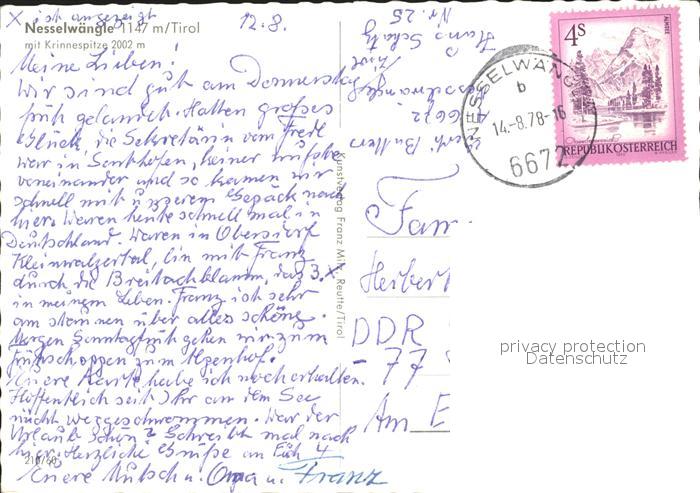 x ist angezeigt
Nesselwängle 1147 m/Tirol
mit Krinnespitze 2002 m
12.8.
Meine Lieben!
Wir sind gut am Donnerstag
früh gelandet. Hatten großes
Glück, die Sekretärin vom Fredl
war in Sonthofen, keiner wußte
voneinander und so kamen wir
schnell mit unserem Gepäck nach
hier. Waren heute schnell mal in
Deutschland. Waren in Obersdorf
Kleinwalzertal, bin mit Franz
durch die Breitachklamm, das 3. x
in meinem Leben. Franz ist sehr
am staunen über alles schöne.
Morgen Sonntagfrüh gehen wir zum
Frühschoppen zum Alpenhof.
Eure Karte habe ich noch erhalten.
Hoffentlich seit Ihr an dem See
nicht weggeschwommen. War der
Urlaub schön? Schreibt mal nach
hier. Herzliche Grüße an Euch 4
Eure Mutsch u. Oma u. Franz
210/60
Kunstverlag Franz Milz, Reutte/Tirol
Hans Schatz
Nr. 25
A 6672
Nesselwängle
Tirol
4 S
ALMSEE
REPUBLIK ÖSTERREICH
NESSELWÄNG
b
14.-8.78-16
6672
Fam.
Herbert
DDR
- 77
Am E
privacy protection
Datenschutz